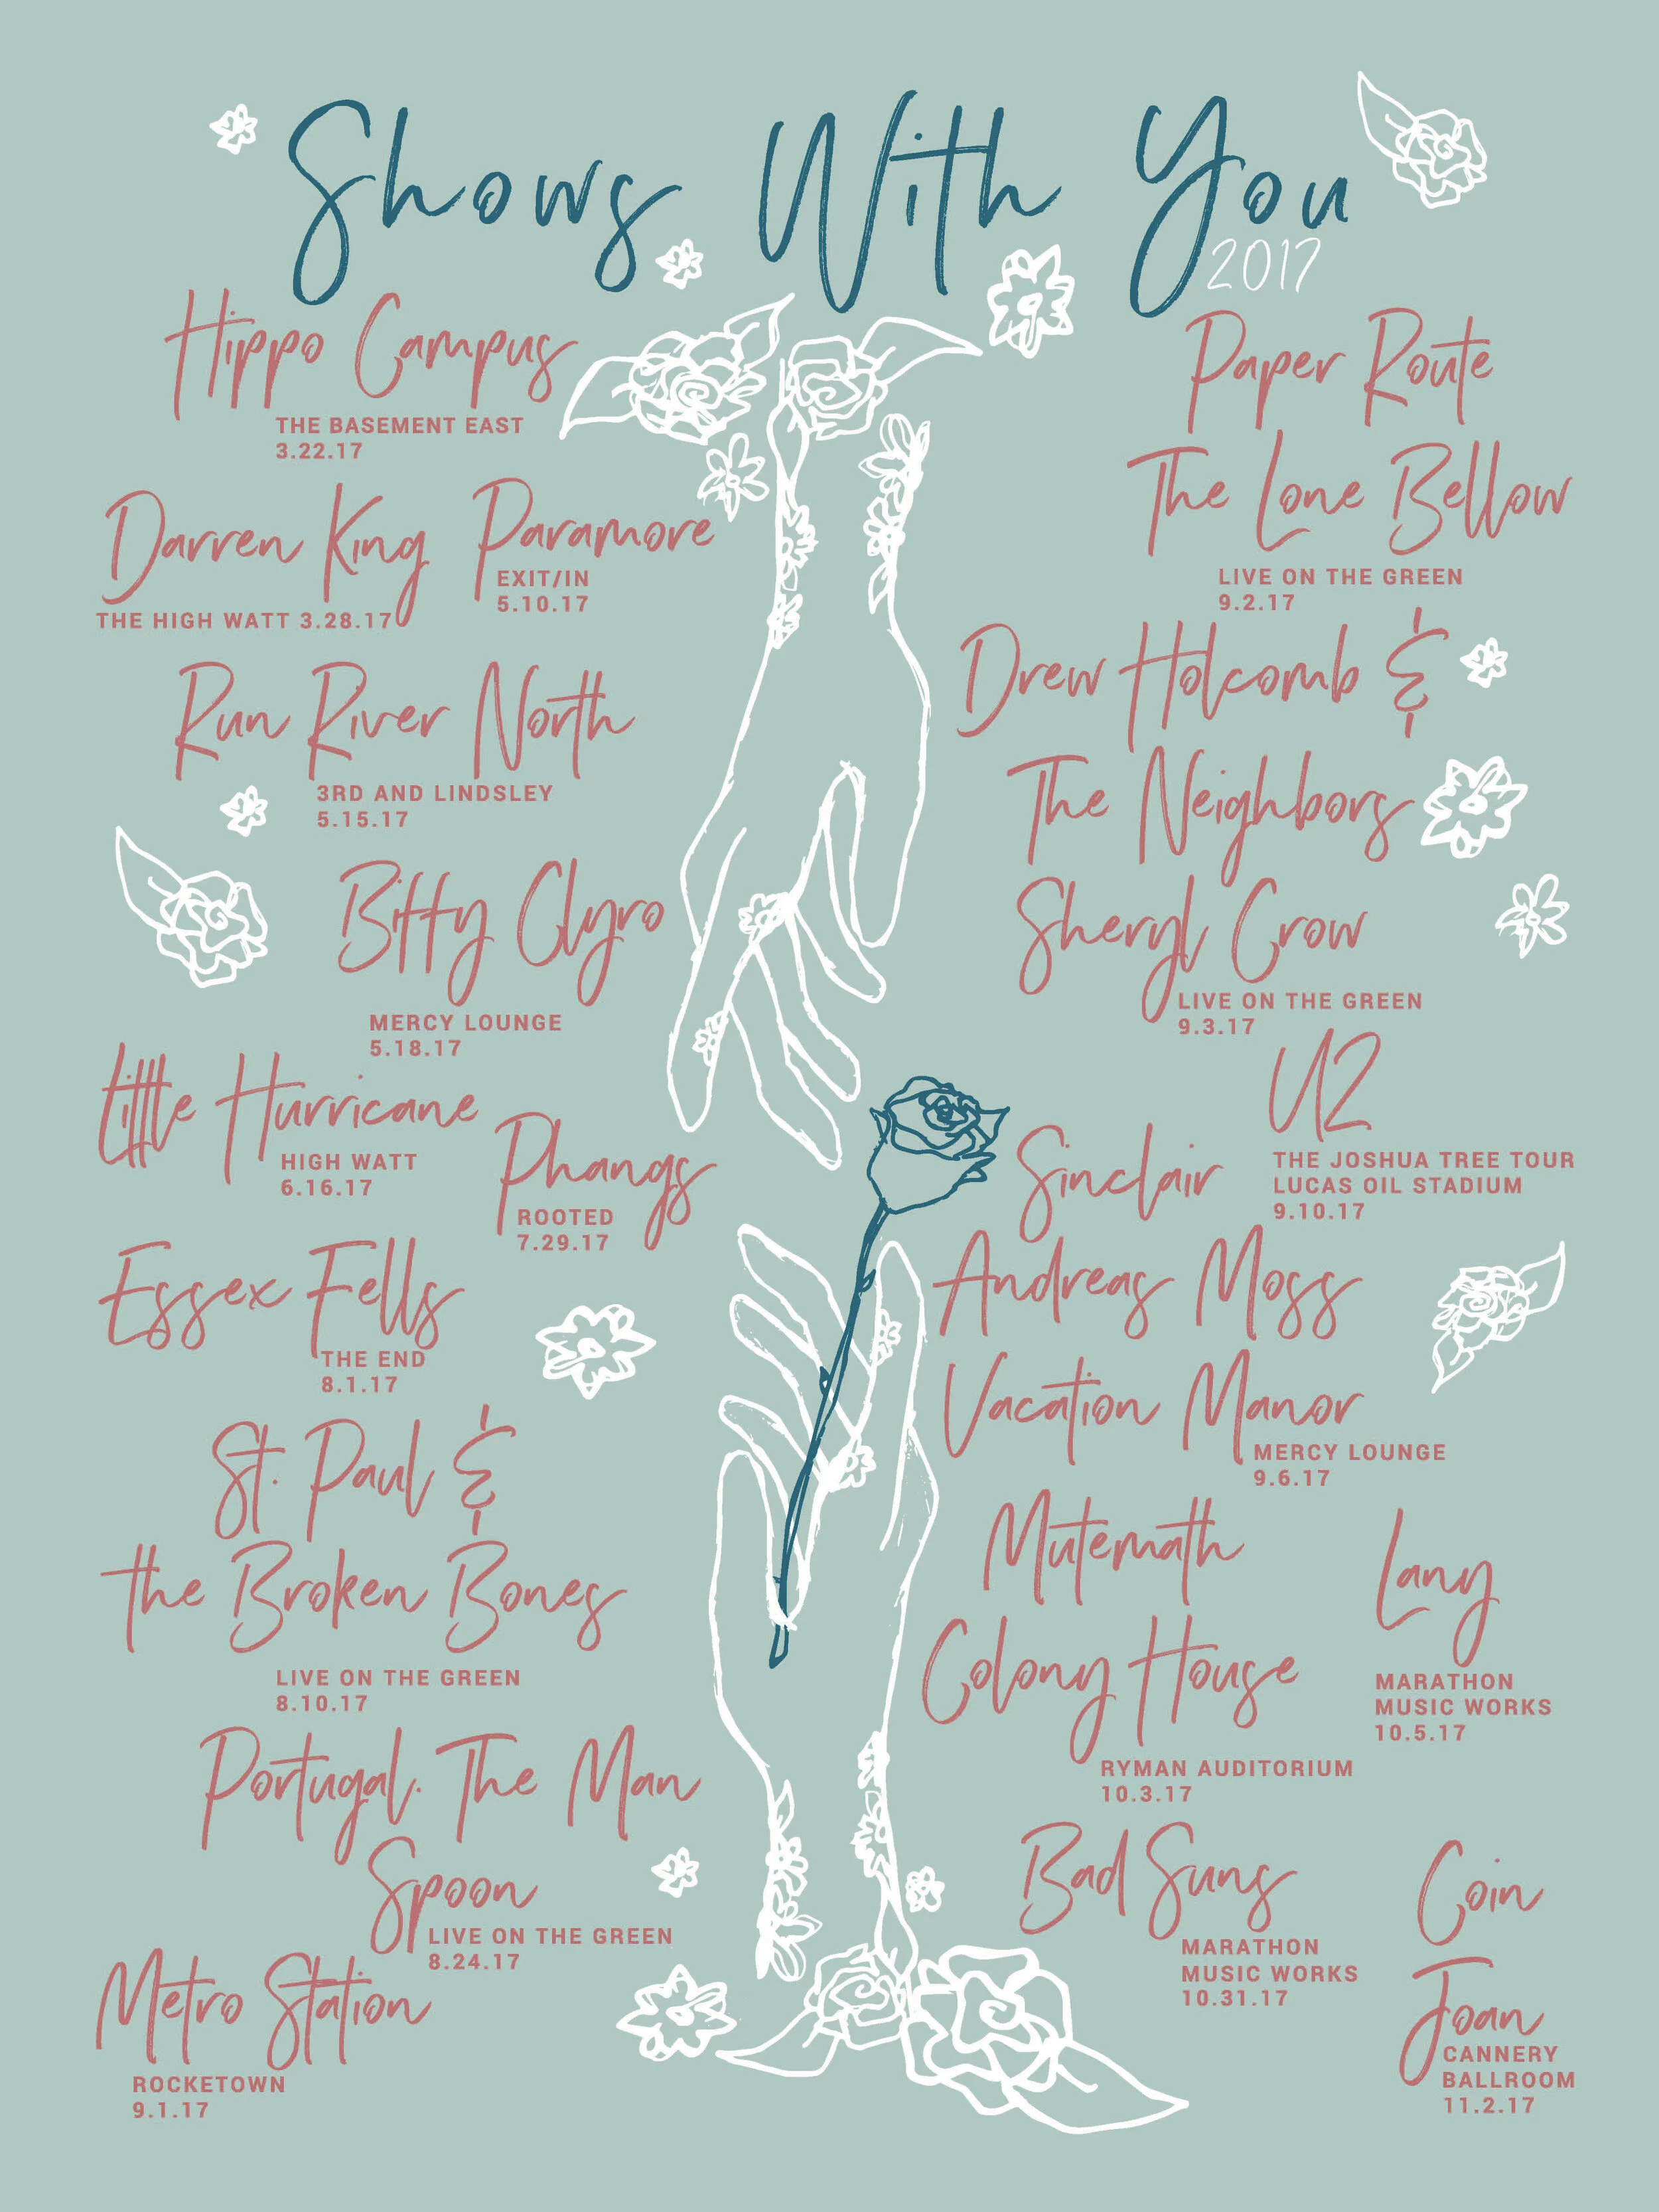 Shows With You
2017
Hippo Campus
THE BASEMENT EAST
3.22.17
Darren King
THE HIGH WATT 3.28.17
Paramore
EXIT/IN
5.10.17
Run River North
3RD AND LINDSLEY
5.15.17
Biffy Clyro
MERCY LOUNGE
5.18.17
Little Hurricane
HIGH WATT
6.16.17
Phangs
ROOTED
7.29.17
Essex Fells
THE END
8.1.17
St. Paul &
the Broken Bones
LIVE ON THE GREEN
8.10.17
Portugal. The Man
Spoon
LIVE ON THE GREEN
8.24.17
Metro Station
ROCKETOWN
9.1.17
Paper Route
The Lone Bellow
LIVE ON THE GREEN
9.2.17
Drew Holcomb &
The Neighbors
Sheryl Crow
LIVE ON THE GREEN
9.3.17
U2
THE JOSHUA TREE TOUR
LUCAS OIL STADIUM
9.10.17
Sinclair
Andreas Moss
Vacation Manor
MERCY LOUNGE
9.6.17
Mutemath
Colony House
RYMAN AUDITORIUM
10.3.17
Lany
MARATHON
MUSIC WORKS
10.5.17
Bad Suns
MARATHON
MUSIC WORKS
10.31.17
Coin
Joan
CANNERY
BALLROOM
11.2.17